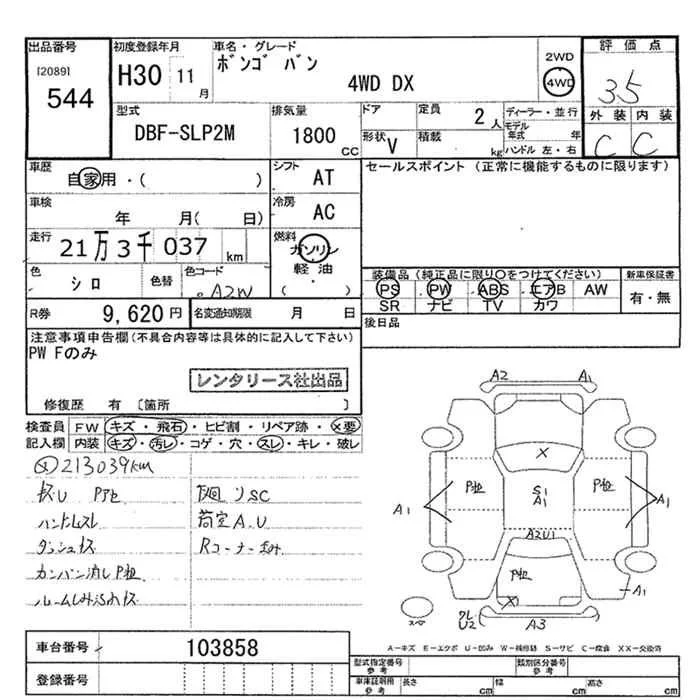 出品番号
[2089]
544
初度登録年月
H30 11月
車名・グレード
ボンゴ バン
4WD DX
2WD
4WD
評価点
3.5
外装 内装
C C
型式
DBF-SLP2M
排気量
1800 CC
ドア
形状 V
定員 2 人
積載 kg
ディーラー・並行
モデル年式 年
ハンドル 左・右
車歴
自家用・( )
シフト AT
車検
年 月( 日)
冷房 AC
走行
21万3千037 km
燃料
ガソリン
軽油
色
シロ
色替
色コード
A2W
( )
R券 9,620円
名変通知期限 月 日
セールスポイント(正常に機能するものに限ります)
装備品(純正品に限り○をつけてください) 新車保証書
PS PW ABS エアB AW
SR ナビ TV カワ
有・無
後日品
注意事項申告欄(不具合内容等は具体的に記入して下さい)
PW Fのみ
レンタリース社出品
修復歴 有 [箇所 ]
検査員記入欄
FW キズ・飛石・ヒビ割・リペア跡・×要
内装 キズ・汚レ・コゲ・穴・スレ・キレ・破レ
213039km
ハンドルスレ
ダッシュキズ
カンバン消しP跡
荷室A.U
Rコーナー凹み
A2 A1
X
P跡 S1 A1 P跡
A1 A1
A2U1
P跡
X
A1
スペア
U2
A3
A-キズ E-エクボ U-凹ミ W-補修跡 S-サビ C-腐食 XX-交換済
車台番号 103858
登録番号
型式指定番号 参考
類別区分番号 参考
車庫証明用 参考 長さ cm 幅 cm 高さ cm